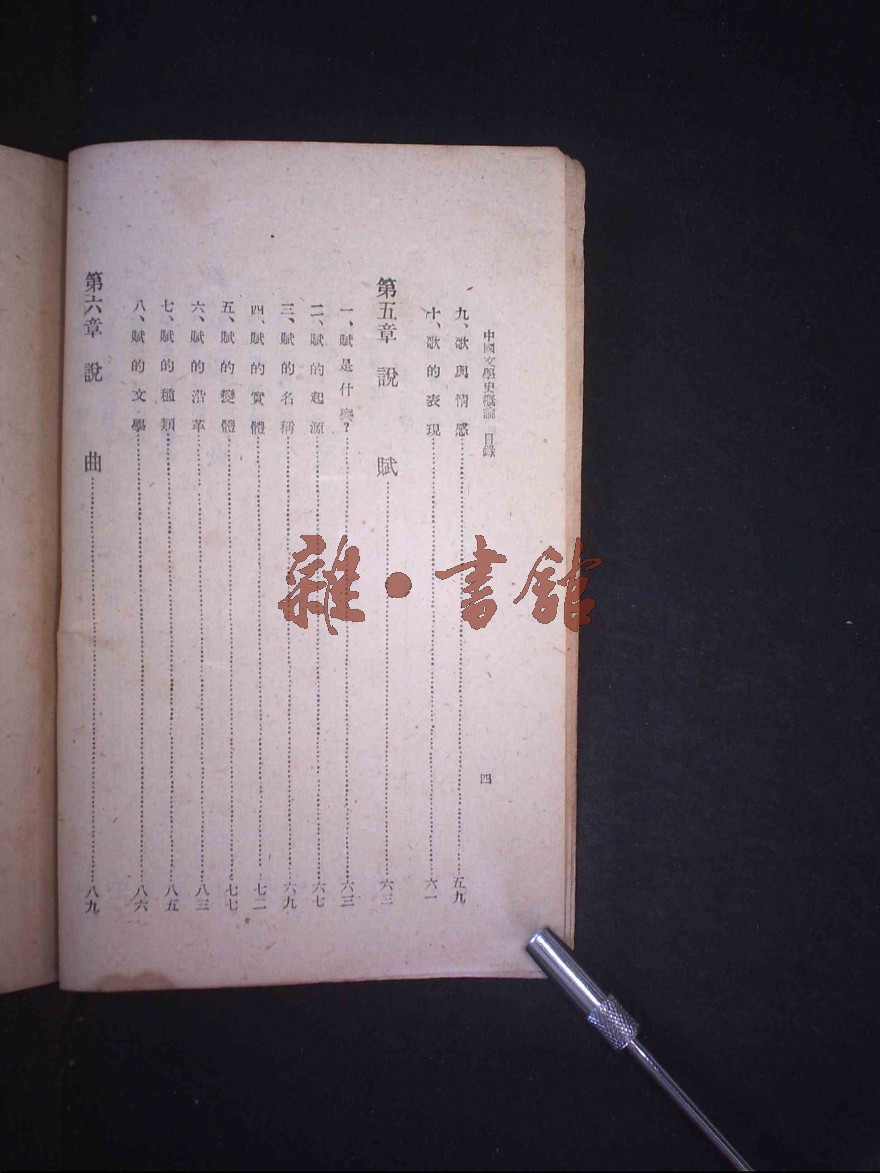 中國文學史概論 目錄 四
九、歌與情感⋯⋯五九
十、歌的表現⋯⋯六一
第五章 說 賦⋯⋯六三
一、賦是什麽?⋯⋯六三
二、賦的起源⋯⋯六七
三、賦的名稱⋯⋯六九
四、賦的實體⋯⋯七二
五、賦的變體⋯⋯七七
六、賦的沿革⋯⋯八三
七、賦的種類⋯⋯八五
八、賦的文學⋯⋯八六
第六章 說 曲⋯⋯八九
雜·書館